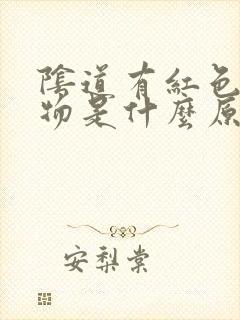 陰道有紅色
物是什麼原
安梨棠